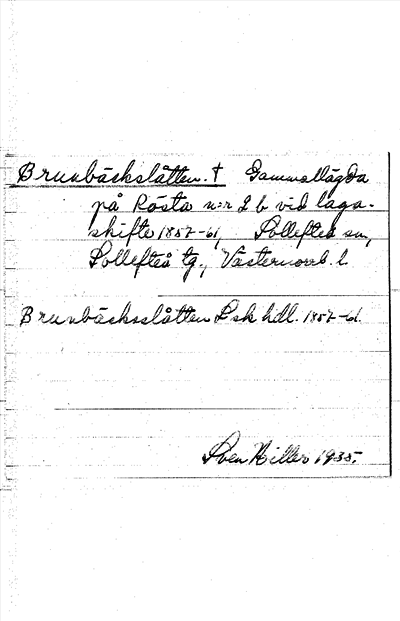 Brunbäckslåtten. † Gammallägda
på Rösta n:r 2 b vid laga-
skifte 1857-61, Sollefteå sn,
Sollefteå tg., Västernorrl. l.
Brunbäcksslåtten Lsk hdl. 1857-61.
Sven Hiller 1935.